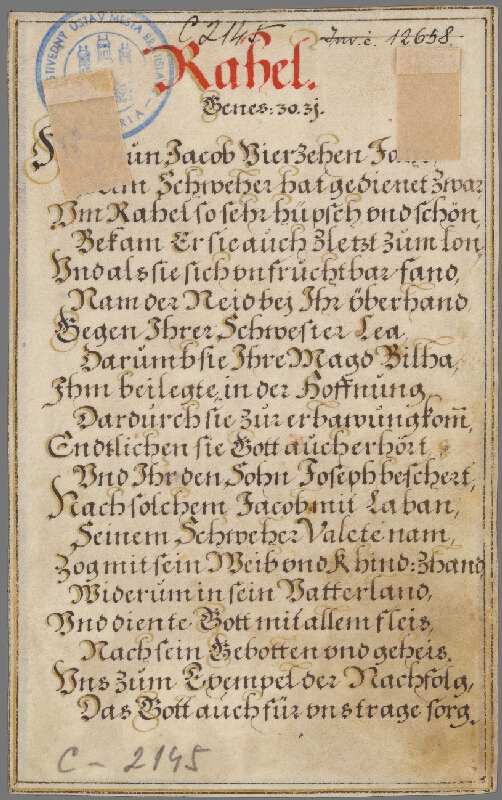 C 2145
Inv. č. 12658.
Rahel.
Genes: 30. 3j.
nun Jacob Vierzehen
Schweher hat gedienet zwar
Vm Rahel so sehr hüpsch vnd schön,
Bekam Er sie auch zletzt zum lon,
Vnd als sie sich vnfruchtbar fand,
Nam der Neid bej Ihr överhand
Gegen Ihrer Schwester Lea,
Darumb sie Ihre Magd Bilha,
Ihm beilegte, in der Hoffnung,
Dardurch sie zur erbawung kom̄,
Endtlichen sie Gott auch erhört,
Vnd Ihr den Sohn Joseph beschert,
Nach solchem Jacob mit Laban,
Seinem Schweher Valete nam,
Zog mit sein Weib vnd Khind: zhand
Widerum in sein Vatterland,
Vnd diente Gott mit allem fleis,
Nach sein Gebotten vnd geheis,
Vns zum Exempel der Nachfolg,
Das Gott auch für vns trage sorg.
C - 2145